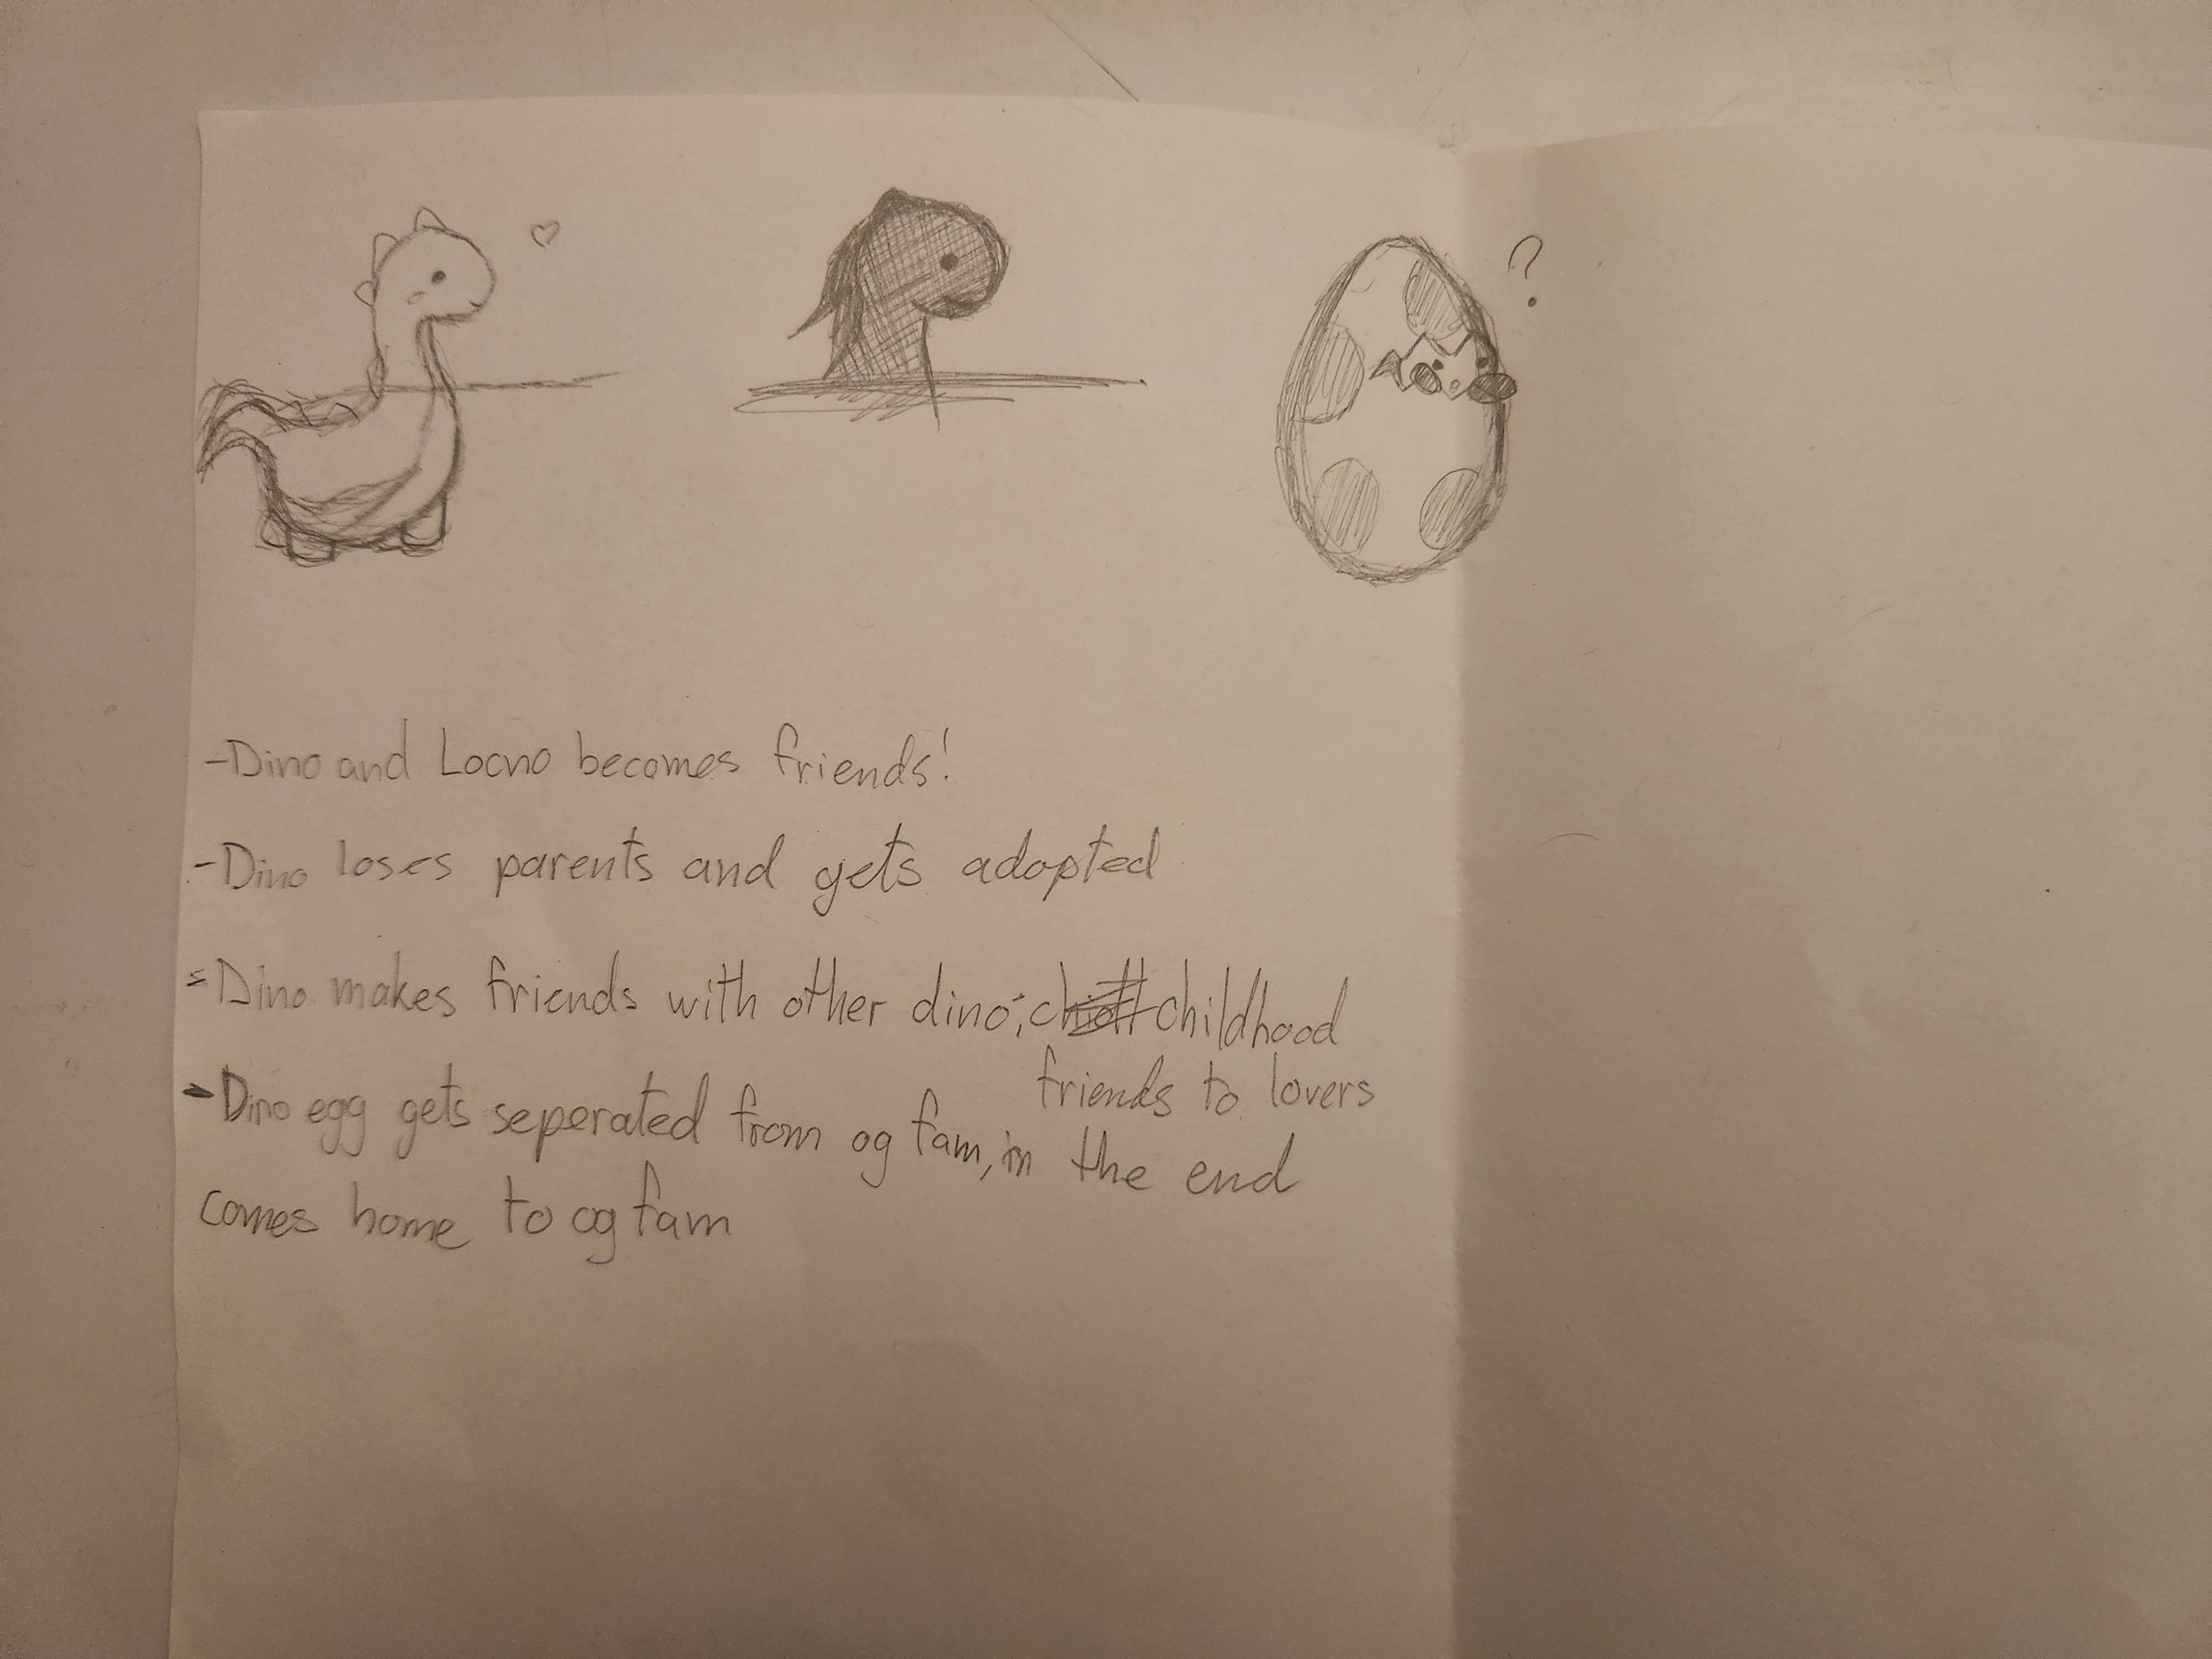 ?
-Dino and Locno becomes friends!
-Dino loses parents and gets adopted
-Dino makes friends with other dino; childhood
friends to lovers
-Dino egg gets seperated from og fam, in the end
comes home to og fam